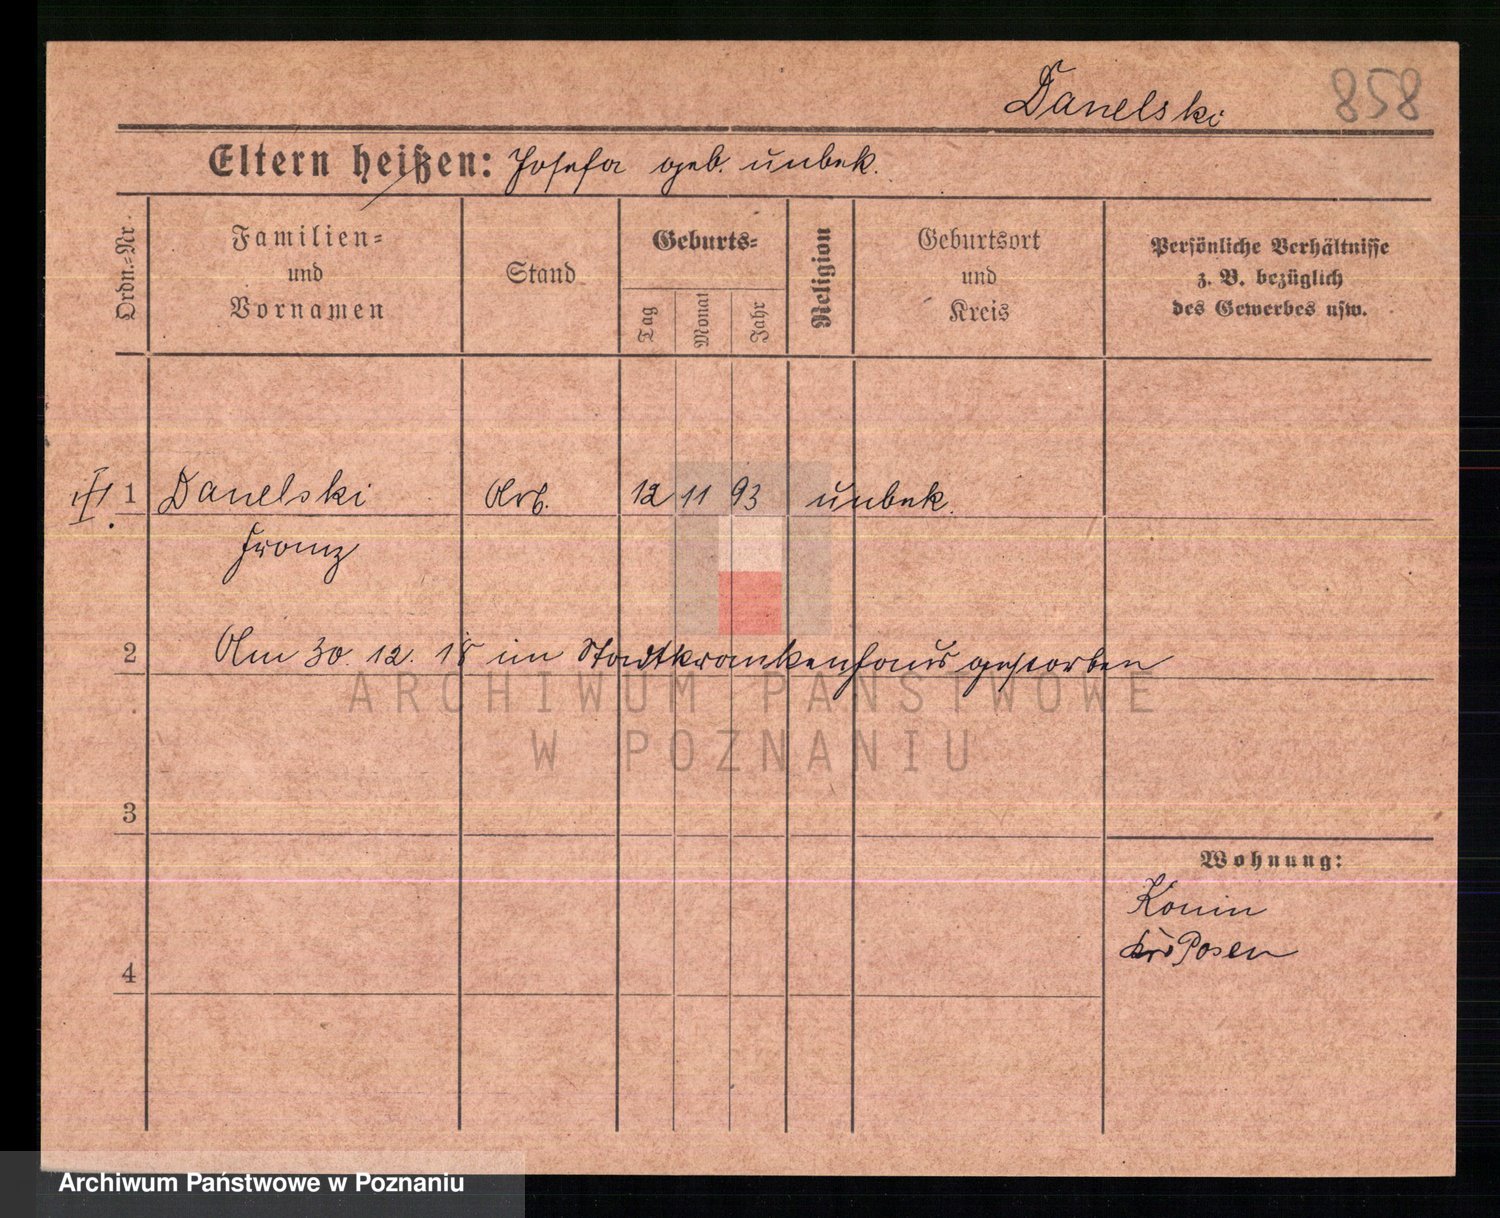 Danelski 858
Eltern heißen: Josefa geb. unbek.
Ordn.-Nr.
Familien-
und
Vornamen
Stand
Geburts-
Tag
Monat
Jahr
Religion
Geburtsort
und
Kreis
Persönliche Verhältnisse
z. B. bezüglich
des Gewerbes usw.
1 Danelski Arb. 12 11 93 unbek.
Franz
2 Am 30. 12. 18 im Stadtkrankenhaus gestorben
ARCHIWUM PAŃSTWOWE
W POZNANIU
3
Wohnung:
Konin
Krs Posen
4
Archiwum Państwowe w Poznaniu